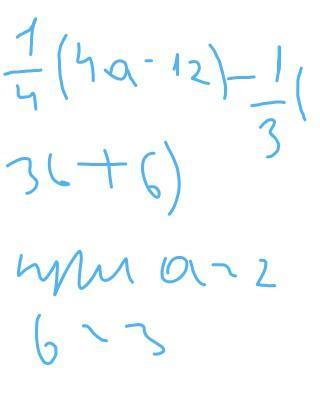 1/4 (4a - 12) - 1/3 (
3b + 6)
при a = 2
b = 3